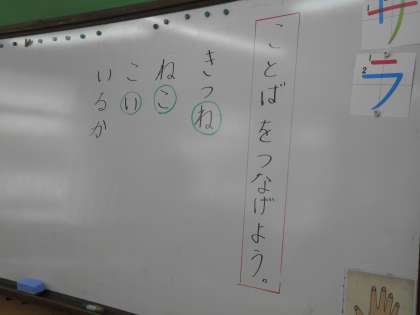 ことばをつなげよう。
きつね
ねこ
こい
いるか
サ
1
ラ
1
2